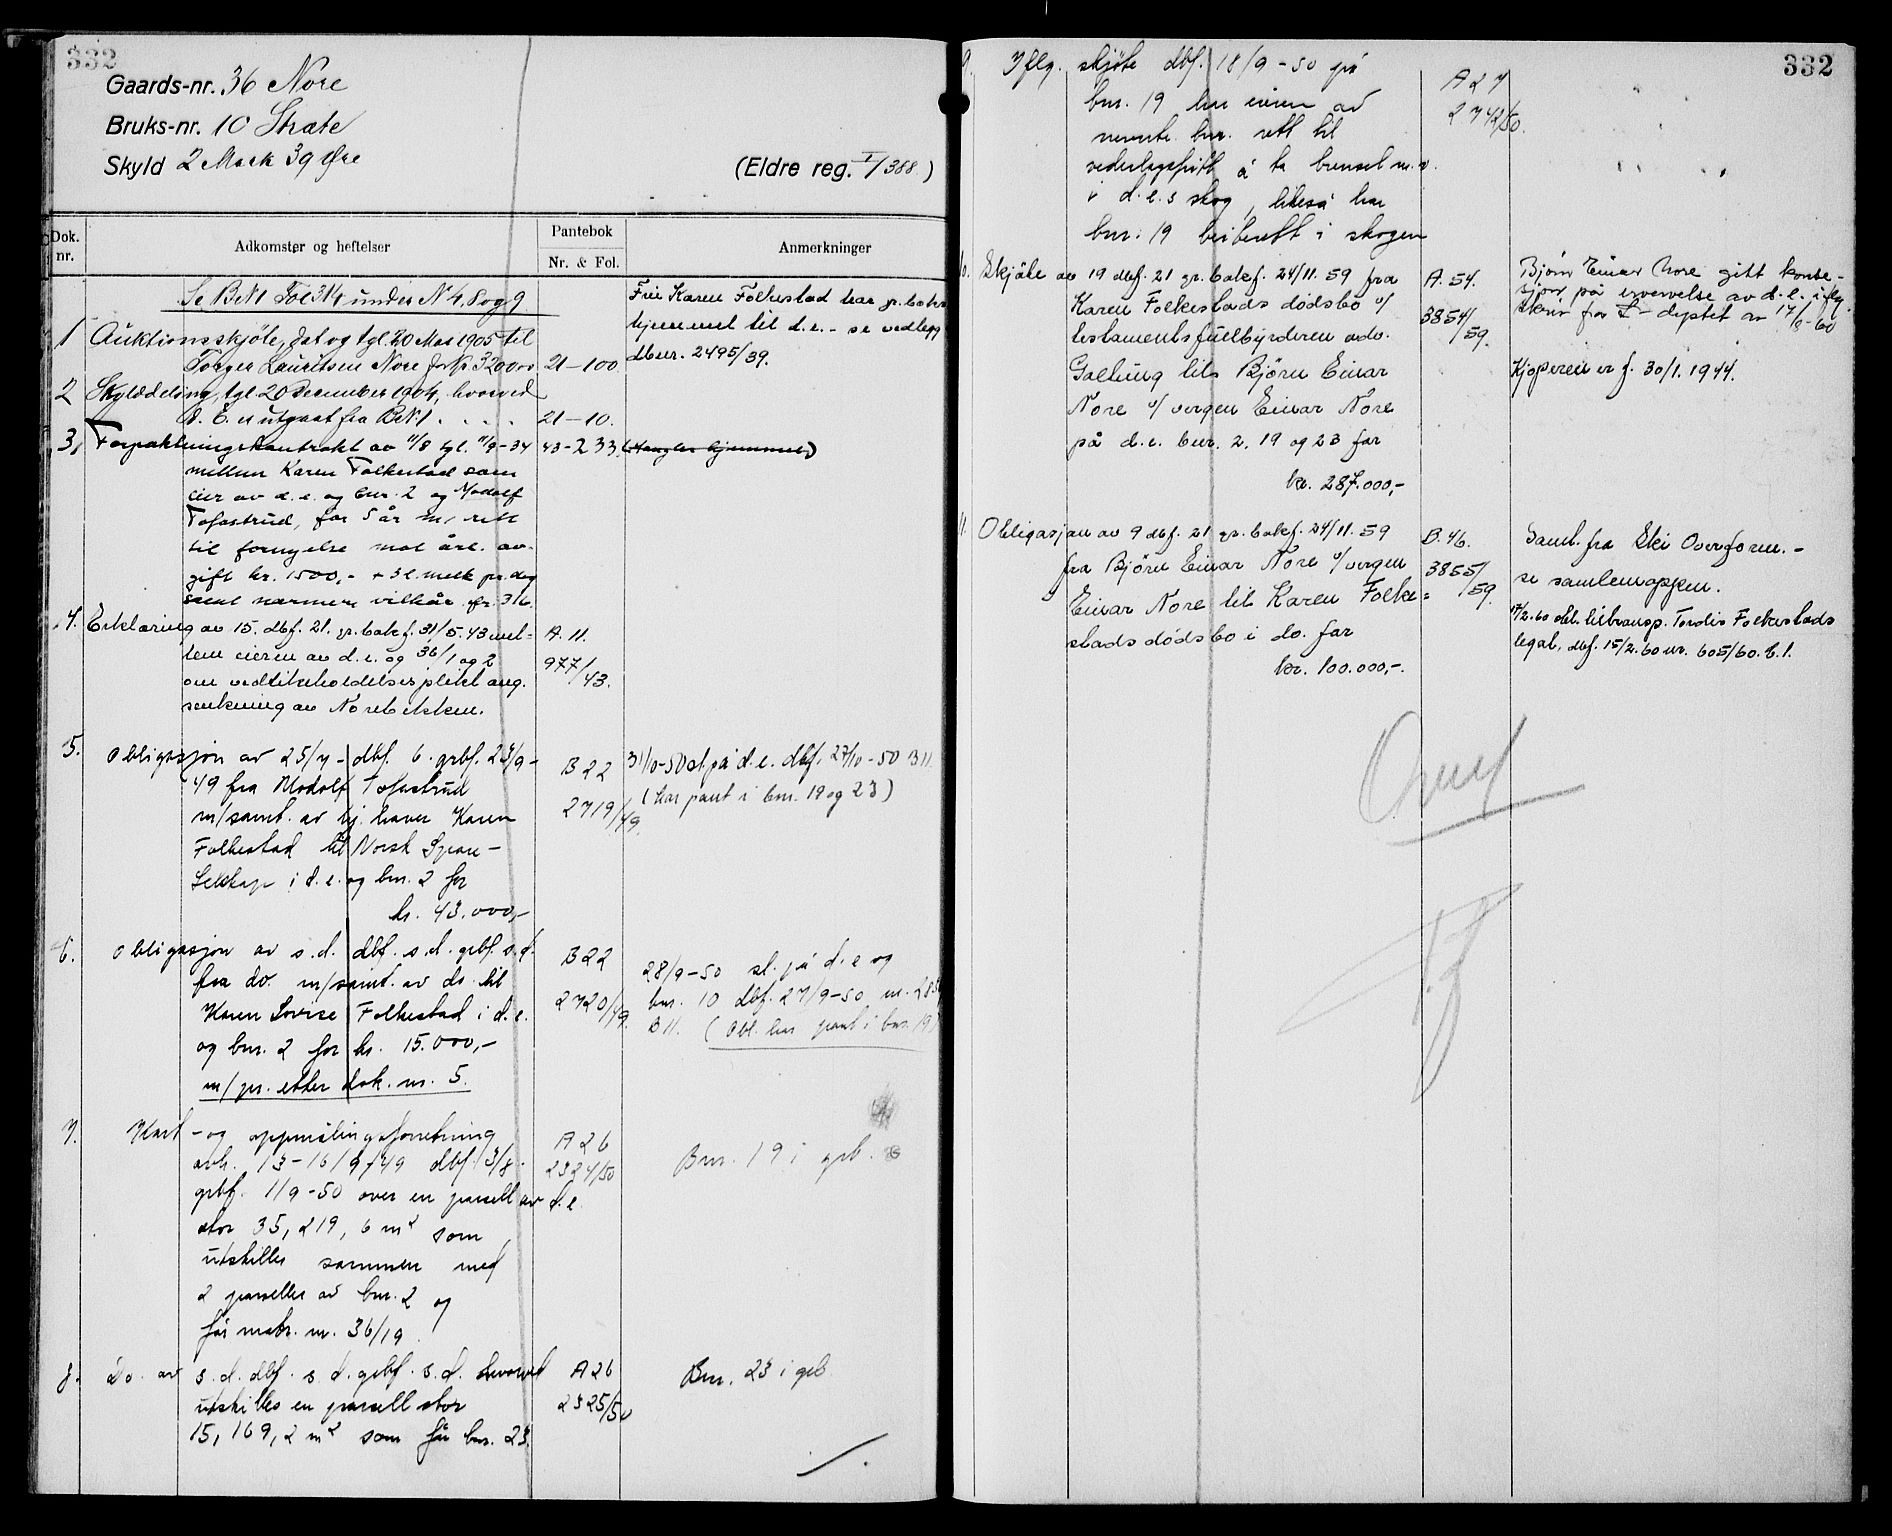 332
Gaards-nr. 36 Nore
Bruks-nr. 10 Stræte
Skyld 2 Mark 39 Øre
(Eldre reg. I/388)
Dok. nr.
Adkomster og heftelser
Pantebok
Nr. & Fol.
Anmerkninger
Se BN1 Fol 314 under N 4, 8 og 9
Frü Karen Folkestad har gr.boks
hjemmel til d.e. - se vedlegg
dbnr. 2495/39.
1 Auktionsskjöte, dat og tgl. 20 Mai 1905 til
Torger Lauritsen Nore for Kr 3200 00 21-100
2 Skylddeling, tgl. 20 December 1904, hvorved
d. E. er utgaat fra BrN:1 . . . . 21-10.
3, Forpaktningskontrakt av 11/8 tgl. 11/9-34 43-233. (Mangler hjemmel)
mellem Karen Folkestad som
eier av d.e. og bnr. 2 og Modolf
Tofastrud, for 5 år m/ rett
til fornyelse mot årl. av-
gift kr. 1500,- + 3 l. melk pr. dag
samt nærmere vilkår. gr. 36.
4. Erklæring av 15. dbf. 21. gr.bokf. 31/5.43 mel- A. 11.
lem eieren av d.e. og 36/1 og 2 977/43.
om vedlikeholdelsesplikt ang.
senkning av Norebekken.
5. Obligasjon av 25/7- dbf. 6. grbf. 23/9- B22 31/10-50 sl. på d.e. dbf. 27/10-50 B11.
49 fra Modolf Tofastrud 2719/49. (har pant i bnr. 19 og 23)
m/samt. av hj.haver Karen
Folkestad til Norsk Spare-
Selskap i d.e. og bnr. 2 for
kr. 43.000,-
6. Obligasjon av s.d. dbf. s.d. grbf. s.d. B22 28/9-50 sl. på d.e og
fra do. m/samt. av do. til 2720/49. bnr. 10 dbf. 27/9-50 nr.
Karen Lovise Folkestad i d.e. B11. (Obl. har pant i bnr. 19)
og bnr. 2 for kr. 15.000,-
m/pr. etter dok. nr. 5.
7. Kart- og oppmålingsforretning A26 Bnr. 19 i grb.
avh. 13-16/9-49 dbf. 3/8- 2324/50
grbf. 1/9-50 over en parsell av d.e.
stor 35,219,6 m² som
utskilles sammen med
2 parseller av bnr. 2 og
får matr. nr. 36/19
8. Do. av s.d. dbf. s.d. grbf. s.d. hvorved A26 Bnr. 23 i grb
utskilles en parsell stor 2325/50
15,169,2 m² som får bnr. 23.
332
9. Iflg. skjöte dbf. 18/9-50 på A27
bnr. 19 har eieren av 2742/50.
nevnte bnr. rett til
vederlagsfritt å ta brensel m.v.
i d.e.s skog, likeså har
bnr. 19 beiterett i skogen
10. Skjöte av 19 dbf. 21 gr.bokf. 24/11. 59 fra A. 54.
Karen Folkestads dödsbo v/ 3854/59.
testamentsfullbyrderen adv.
Galtung til Björn Einar
Nore v/ vergen Einar Nore
på d.e. bnr. 2, 19 og 23 for
kr. 287.000,-
Björn Einar Nore gitt konse-
sjon på ervervelse av d.e. iflg.
skriv fra L- deptet av 17/-60
Kjøperen er f. 30/1. 1944.
11. Obligasjon av 9 dbf. 21 gr.bokf. 24/11. 59 B. 46.
fra Björn Einar Nore v/ vergen 3855/59.
Einar Nore til Karen Folke-
stads dödsbo i do. for
kr. 100.000,-.
Samt. fra Ski Overform. -
se samlemappen.
17/2.60 obl. tiltransp. Tordis Folkestads
legat, dbf. 15/2.60 nr. 605/60. b.l.